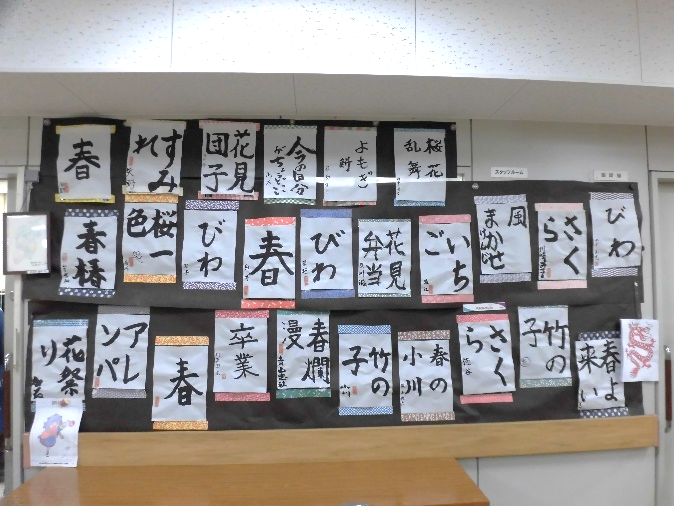 スタッフルーム
春
すみ
れ
花見
団子
今の自分
がちょうどいい
よもぎ
餅
桜花
乱舞
春椿
桜一
色
びわ
春
びわ
花見
弁当
いち
ご
風
まかせ
さく
ら
びわ
花祭
り
アレ
ンパ
春
卒業
春爛
漫
竹の
子
春の
小川
さく
ら
竹の
子
春よ
来い